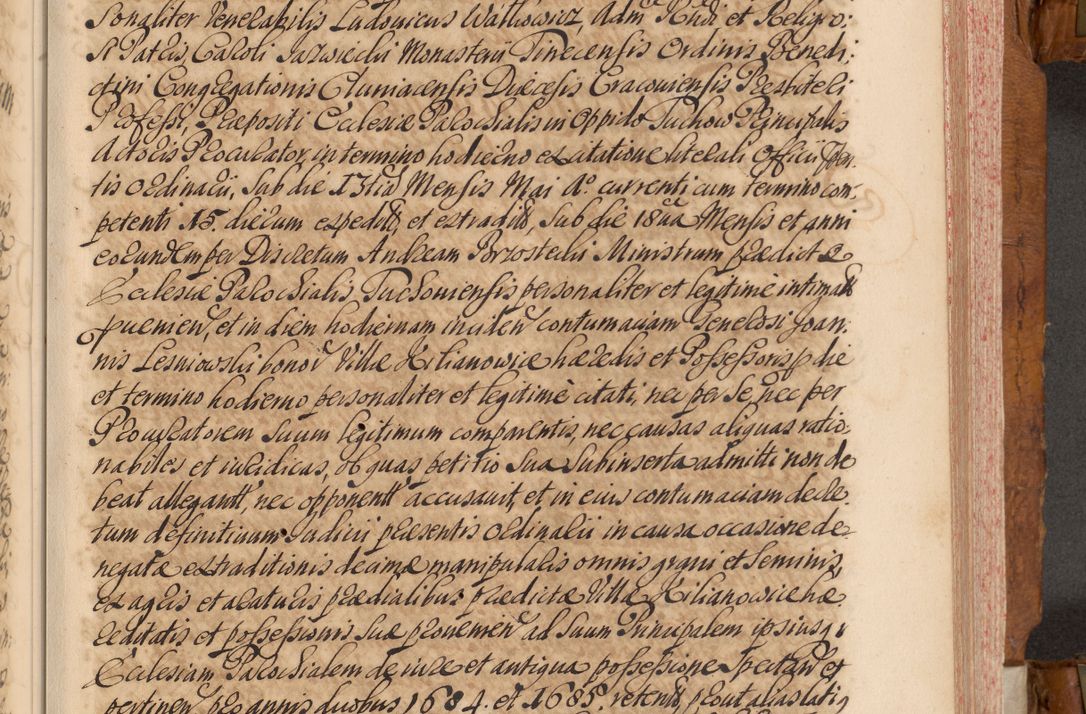 sonaliter Venerabilis Ludovicus Watkowicz, Adm Rndi et Religio:
si Patris, Caroli Jazwiecki Monasterii Tinecensis Ordinis Benedi:
ctini Congregationis Cluniacensis Diæcesis Cracoviensis Præsbiteri
Professi, Præpositi Ecclesiæ Parochialis in Oppido Tuchow Principalis
Actoris Procurator, in termino hodierno ex citatione literali Officii
tis Ordinarii, sub die 13tia Mensis Mai Aº currenti cum termino com
petenti 15. dierum expedit, et extradit, sub die 18va Mensis et anni
eorundem per Discretum Andream Brzostecki Ministrum prædictæ
Ecclesiæ Parochialis Tuchoviensis personaliter et legitimè intimat
et in diem hodiernam inciden contumaciam Generosi Joan:
nis Lesniowski bonor Villæ Kilianowice hæredis et Possessoris, p die
et termino hodierno personaliter et legitimè citati, nec per se, nec per
Procuratorem suum legitimum comparentis, nec causas aliquas ratio:
nabiles et iuridicas, ob quas petitio sua subinserta admitti non de
beat allegantt, nec opponentt accusavit, et in eius contumaciam decre
tum definitivum Judicii præsentis Ordinarii in causa occasione de:
negatæ extraditionis decimæ manipularis omnis grani et seminis,
ex agris et araturis prædialibus prædictæ Villæ Kilianowice hæ
reditatis et possessionis suæ provenien ad suam Principalem ipsiusq
Ecclesiam Parochialem de iure et antiqua possessione spectan et
pertinen pro annis duobus 1684. et 1685. retent, prout alias latis